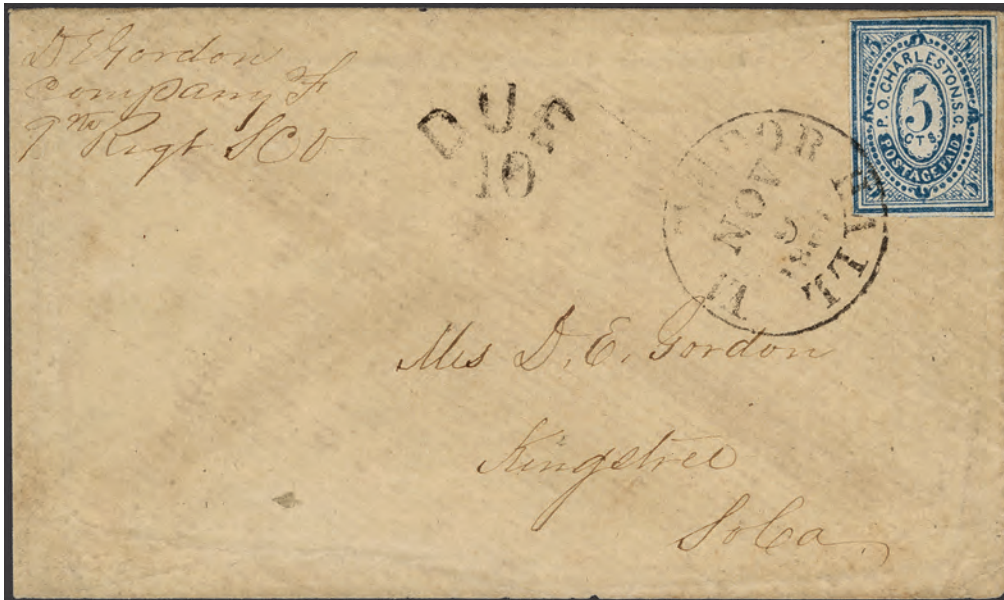 D E Gordon
Company F
9th Regt SCV
DUE
10
TUDOR HALL
NOV
9
5 5
P.O. CHARLESTON. S.C.
5
CTS.
POSTAGE PAID
5 5
Mrs D. E. Gordon
Kingstree
So Ca